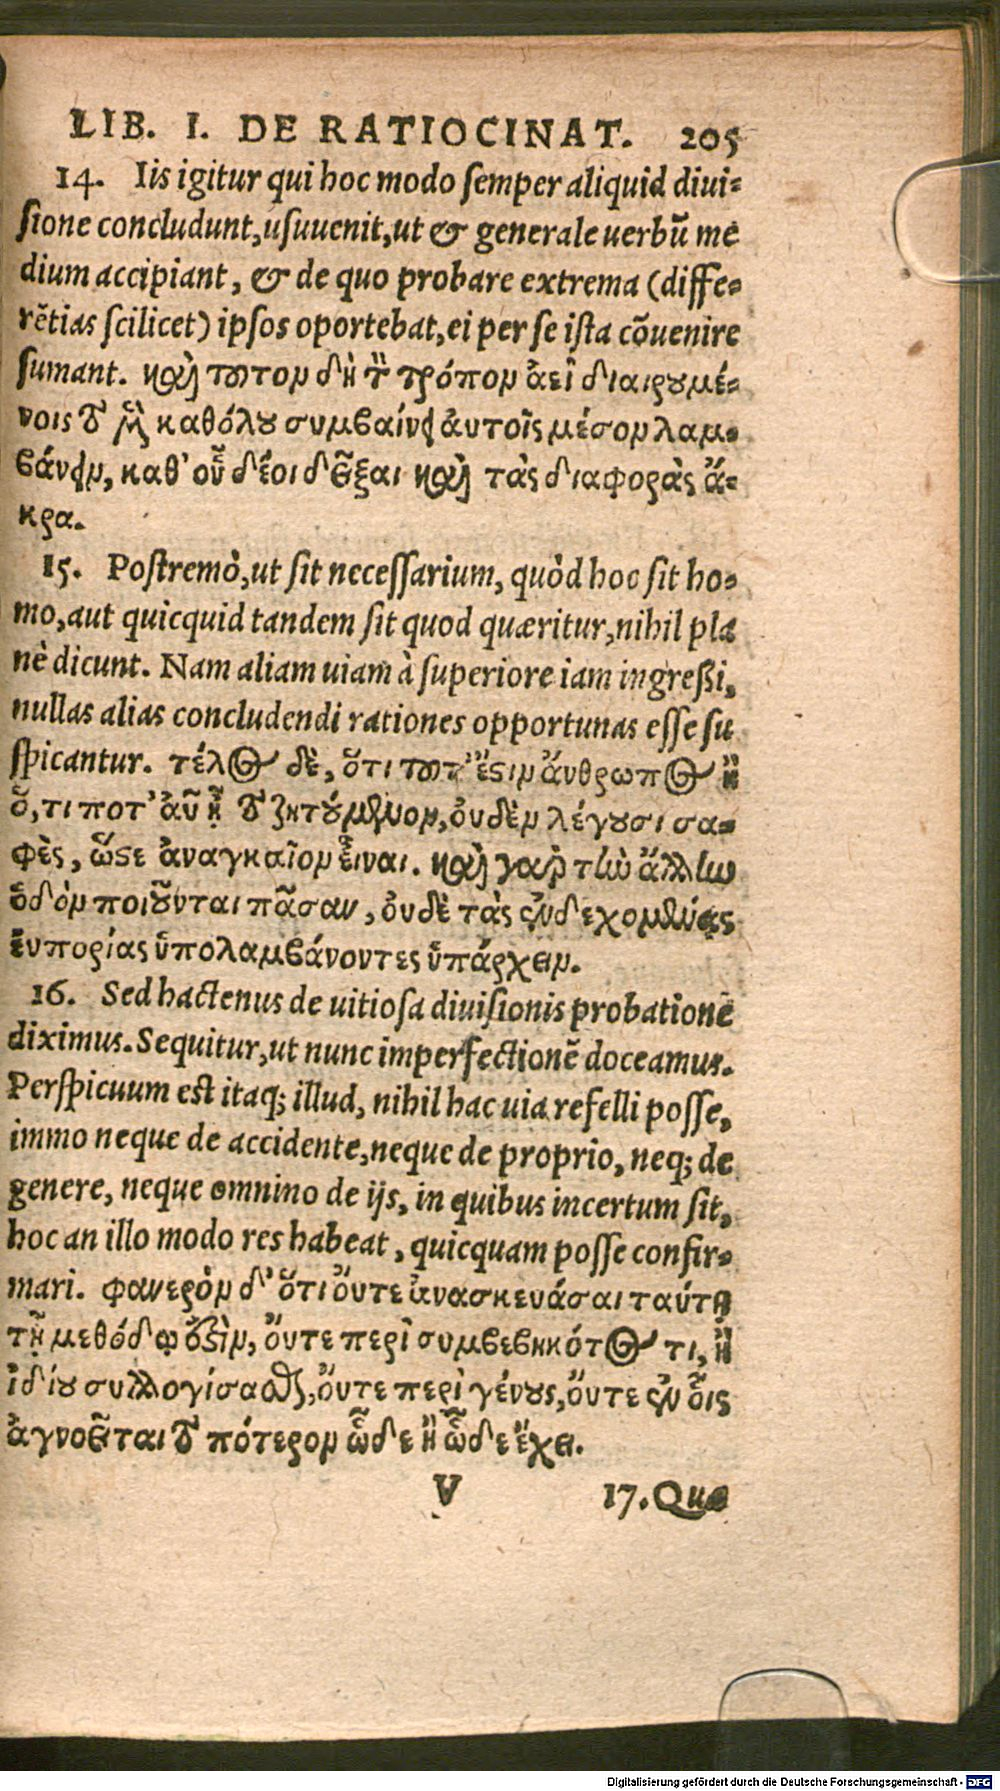 LIB. I. DE RATIOCINAT. 205
14. Iis igitur qui hoc modo ſemper aliquid diui-
ſione concludunt, uſuuenit, ut & generale uerbũ me
dium accipiant, & de quo probare extrema (diffe-
rẽtias ſcilicet) ipſos oportebat, ei per ſe iſta cõuenire
ſumant. καὶ τοῦτον δὴ τὸν τρόπον ἀεὶ διαιρουμέ-
νοις τὸ μὲν καθόλου συμβαίνει αὐτοῖς μέσον λαμ-
βάνειν, καθ' οὗ δέοι δεῖξαι καὶ τὰς διαφορὰς ἄ-
κρα.
15. Poſtremò, ut ſit neceſſarium, quòd hoc ſit ho-
mo, aut quicquid tandem ſit quod quæritur, nihil pla
nè dicunt. Nam aliam uiam à ſuperiore iam ingreßi,
nullas alias concludendi rationes opportunas eſſe ſu
ſpicantur. τέλος δὲ, ὅτι τοῦτ' ἔστιν ἄνθρωπος ἢ
ὅ, τι ποτ' ἂν ᾖ τὸ ζητούμενον, οὐδὲν λέγουσι σα-
φὲς, ὥστε ἀναγκαῖον εἶναι. καὶ γὰρ τὴν ἄλλην
ὁδὸν ποιοῦνται πᾶσαν, οὐδὲ τὰς ἐνδεχομένας
εὐπορίας ὑπολαμβάνοντες ὑπάρχειν.
16. Sed hactenus de uitioſa diuiſionis probationẽ
diximus. Sequitur, ut nunc imperfectionẽ doceamus.
Perſpicuum eſt itaq; illud, nihil hac uia refelli poſſe,
immo neque de accidente, neque de proprio, neq; de
genere, neque omnino de ijs, in quibus incertum ſit,
hoc an illo modo res habeat, quicquam poſſe confir-
mari. φανερὸν δ' ὅτι οὔτε ἀνασκευάσαι ταύτῃ
τῇ μεθόδῳ ἔστιν, οὔτε περὶ συμβεβηκότος τι, ἢ
ἰδίου συλλογίσασθαι, οὔτε περὶ γένους, οὔτε ἐν οἷς
ἀγνοεῖται τὸ πότερον ὧδε ἢ ὧδε ἔχει.
V 17. Quæ
Digitalisierung gefördert durch die Deutsche Forschungsgemeinschaft - DFG